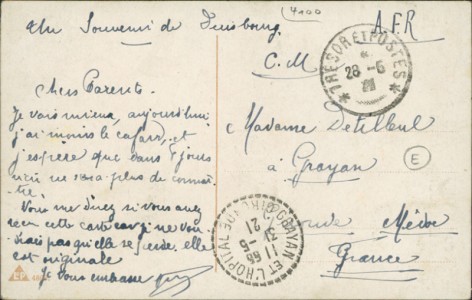 Un Souvenir de Duisbourg
4200
A.F.R
C.M
TRESOR ET POSTES
28-5
21
Chers Parents.
Je vais mieux, aujourd'hui
j'ai moins le cafard, et
j'espère que dans jours
ne sera plus de
Vous me direz si vous avez
reçu cette carte car je ne
pas qu'elle se perde. elle
est originale
Je vous embrasse
Madame
à Grayan
E
GRAYAN ET L'HOPITAL
11 66
31-5
21
Gironde Médoc
France